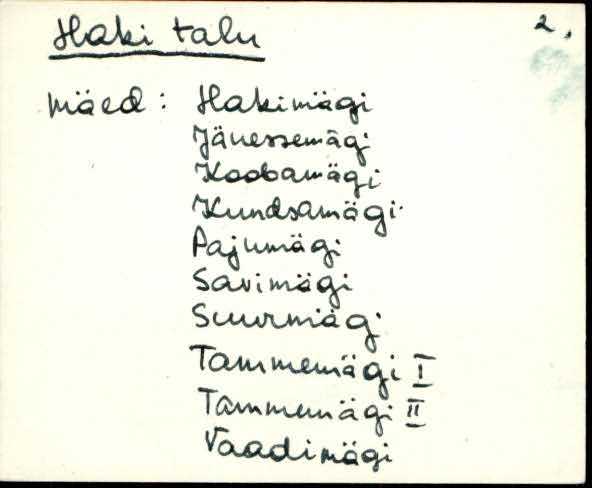 Haki talu 2.
mäed: Hakimägi
Jänessemägi
Koobamägi
Kundsamägi
Pajumägi
Savimägi
Suurmägi
Tammemägi I
Tammemägi II
Vaadimägi